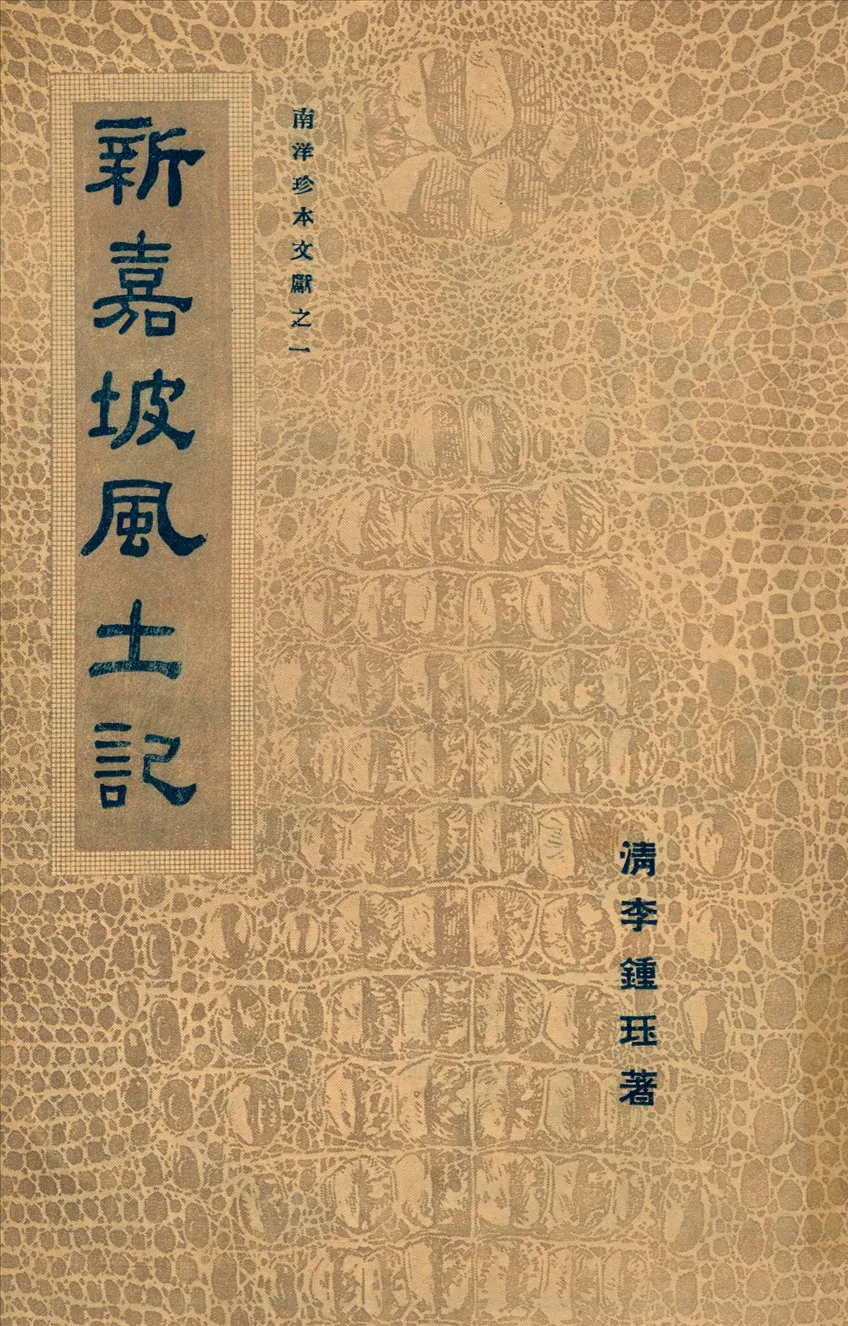 新嘉坡風土記
南洋珍本文獻之一
清李鍾珏著